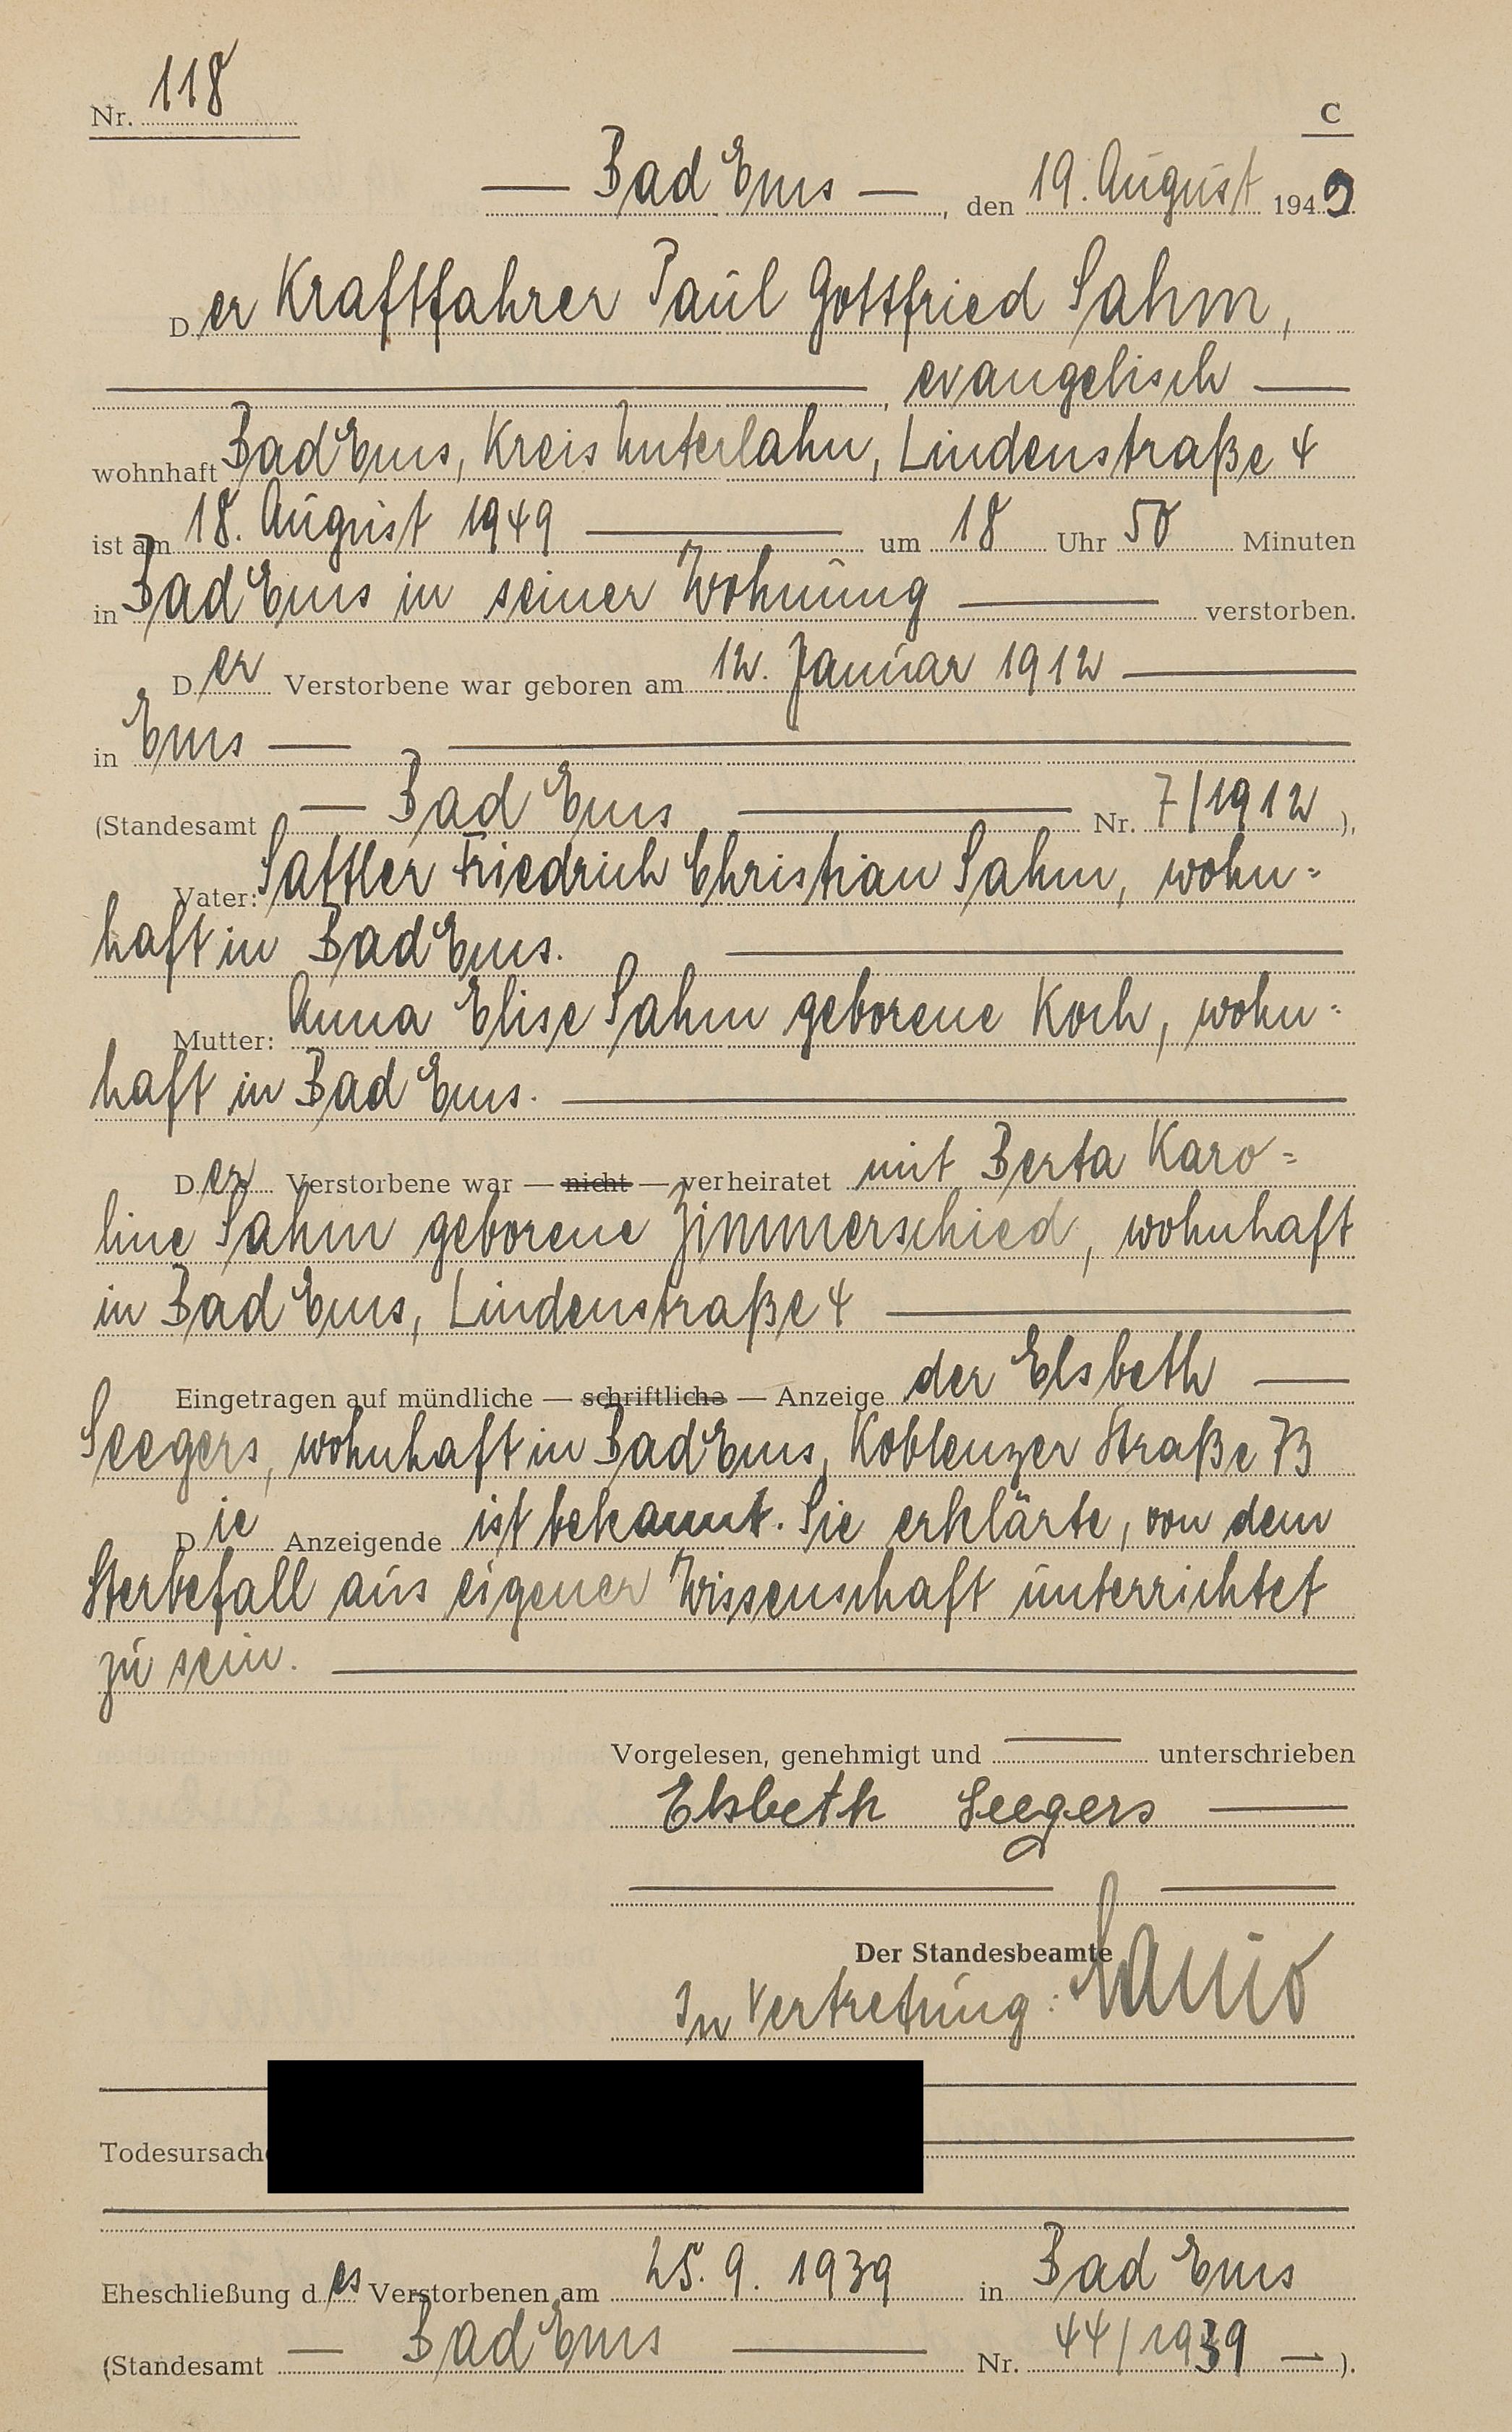 Nr. 118
C
Bad Ems, den 19. August 1949
Der Kraftfahrer Paul Gottfried Sahm,
, evangelisch
wohnhaft Bad Ems, Kreis Unterlahn, Lindenstraße 4
ist am 18. August 1949 um 18 Uhr 50 Minuten
in Bad Ems in seiner Wohnung verstorben.
Der Verstorbene war geboren am 12. Januar 1912
in Ems
(Standesamt Bad Ems Nr. 7/1912),
Vater: Sattler Friedrich Christian Sahm, wohn=
haft in Bad Ems.
Mutter: Anna Elise Sahm geborene Koch, wohn=
haft in Bad Ems.
Der Verstorbene war — nicht — verheiratet mit Berta Karo=
line Sahm geborene Zimmerschied, wohnhaft
in Bad Ems, Lindenstraße 4
Eingetragen auf mündliche — schriftliche — Anzeige der Elsbeth
Seegers, wohnhaft in Bad Ems, Koblenzer Straße 73
Die Anzeigende ist bekannt. Sie erklärte, von dem
Sterbefall aus eigener Wissenschaft unterrichtet
zu sein.
Vorgelesen, genehmigt und unterschrieben
Elsbeth Seegers
Der Standesbeamte
In Vertretung:
Todesursache
Eheschließung des Verstorbenen am 25. 9. 1939 in Bad Ems
(Standesamt Bad Ems Nr. 44/1939).